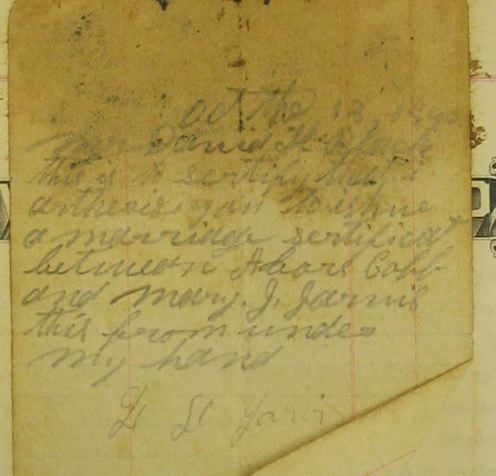 Oct the 13, 1890
Mr David H Black
this is to sertify that I
artherise you to ishue
a marridge sertificat
between Abors Cobb
and Mary. J. Jarvis
this from under
my hand
Jarvis